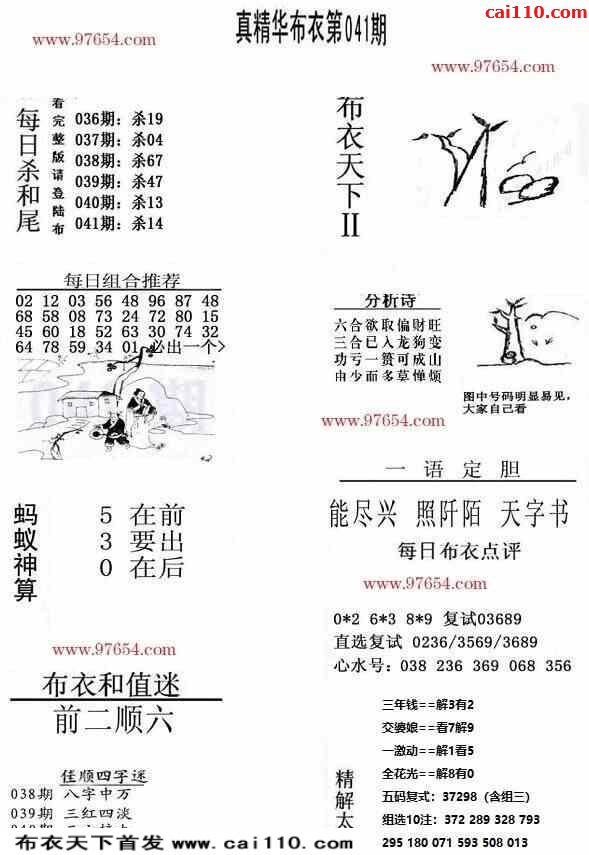 cai110.com
真精华布衣第041期
www.97654.com
www.97654.com
每日杀和尾
看完整版请登陆布
036期：杀19
037期：杀04
038期：杀67
039期：杀47
040期：杀13
041期：杀14
布衣天下II
每日组合推荐
02 12 03 56 48 96 87 48
68 58 08 73 24 72 80 15
45 60 18 52 63 30 74 32
64 78 59 34 01 必出一个>
分析诗
六合欲取偏财旺
三合已入龙狗变
功亏一赞可成山
由少而多莫惮烦
图中号码明显易见，
大家自己看
www.97654.com
一语定胆
能尽兴 照阡陌 天字书
每日布衣点评
www.97654.com
蚂蚁神算
5 在前
3 要出
0 在后
www.97654.com
0*2 6*3 8*9 复试03689
直选复试 0236/3569/3689
心水号：038 236 369 068 356
布衣和值迷
前二顺六
佳顺四字迷
038期 八字中万
039期 三红四淡
精解太
三年钱==解3有2
交婆娘==看7解9
一激动==解1看5
全花光==解8有0
五码复式：37298（含组三）
组选10注：372 289 328 793
295 180 071 593 508 013
布衣天下首发 www.cai110.com